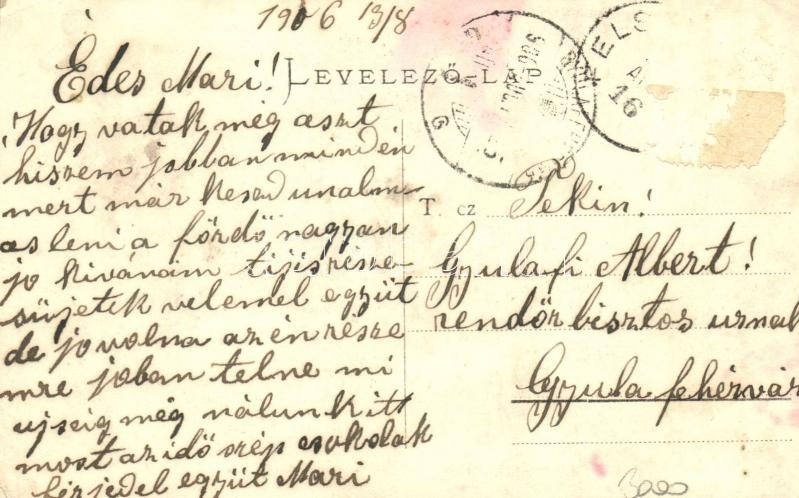 1906 13/8
Édes Mari!
LEVELEZŐ-LAP
Hogy vatak még aszt
hiszem jobban minden
mert már kezd unalm
as leni a fördő nagyan
jo kivánam tijis része
süjetek velemel együt
de jo volna az én része
mre joban telne mi
ujseig még nálunk itt
most az idő szép csokolak
férjedel együt Mari
T. cz Tekin!
Gyulafi Albert!
rendőr bisztos urnak
Gyula fehérvár
ELS
16
3000